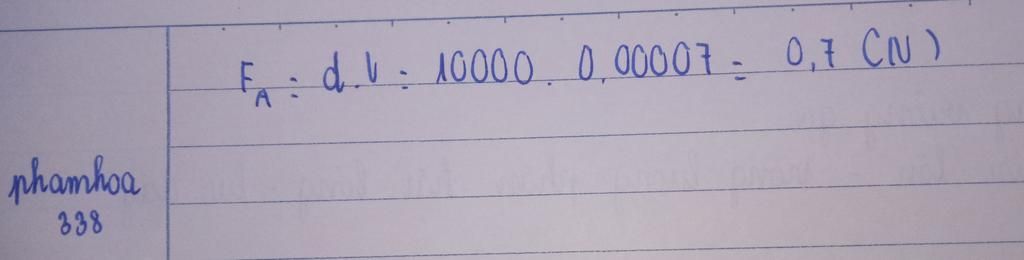 F_A = d.V = 10000. 0,00007 = 0,7 (N)
phamhoa
338